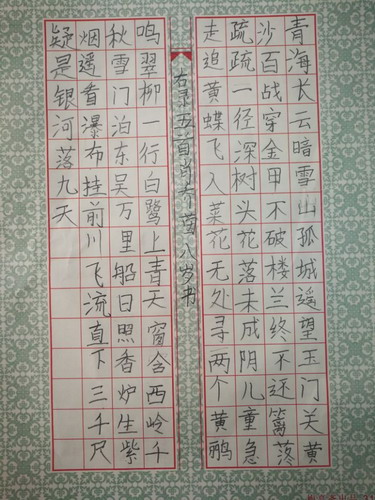 青海长云暗雪山孤城遥望玉门关黄
沙百战穿金甲不破楼兰终不还篱落
疏疏一径深树头花落未成阴儿童急
走追黄蝶飞入菜花无处寻两个黄鹂
鸣翠柳一行白鹭上青天窗含西岭千
秋雪门泊东吴万里船日照香炉生紫
烟遥看瀑布挂前川飞流直下三千尺
疑是银河落九天
右录五首肖 八岁书